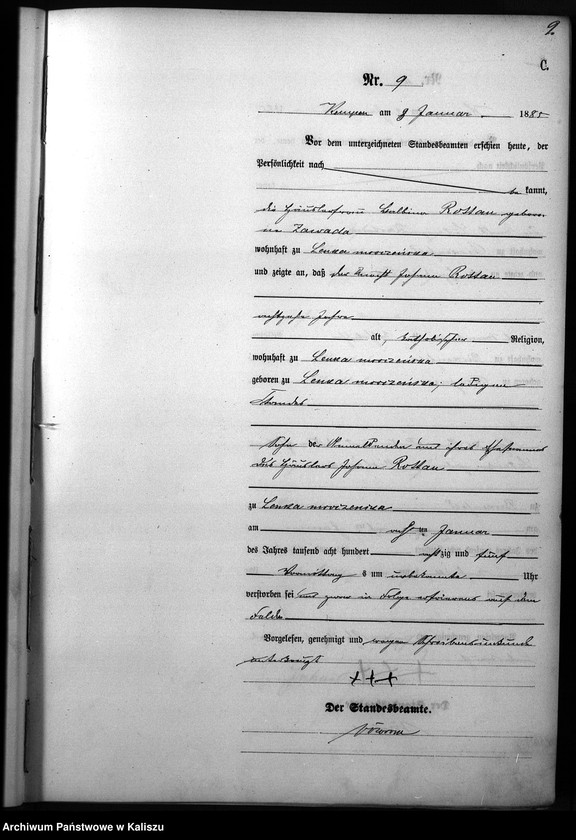 9.
C.
Nr. 9
Kempen am 9 Januar 1885
Vor dem unterzeichneten Standesbeamten erschien heute, der
Persönlichkeit nach
be kannt,
die Häuslerfrau Balbina Rostau gebore-
ne Zawada
wohnhaft zu Lenka mroczeńska
und zeigte an, daß der Knecht Johann Rostau
achtzehn Jahre
alt, katholischer Religion,
wohnhaft zu Lenka mroczeńska
geboren zu Lenka mroczeńska, ledigen
Standes
Sohn der Anmeldenden und ihres Ehemannes
des Häuslers Johann Rostau
zu Lenka mroczenska
am acht ten Januar
des Jahres tausend acht hundert achtzig und fünf
Vormittag s um unbekannte Uhr
verstorben sei und zwar in Folge erfrierens auf dem
Felde
Vorgelesen, genehmigt und wegen Schreibensunkunde
unterkreuzt
+++
Der Standesbeamte.
Archiwum Państwowe w Kaliszu